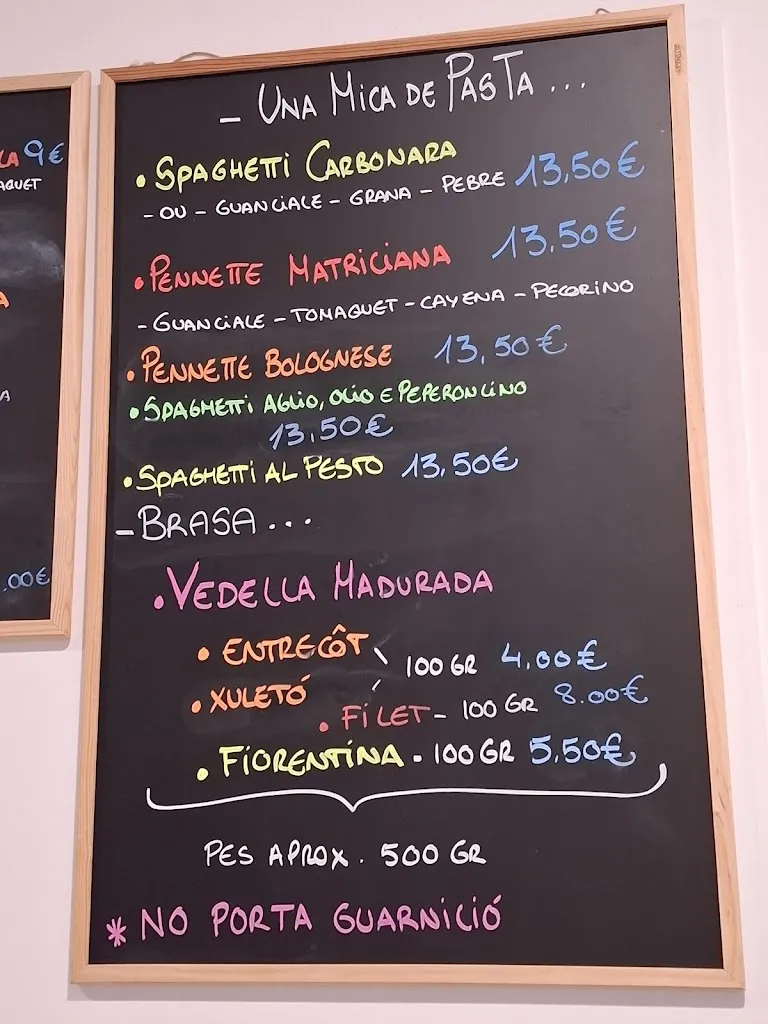 LA 9€
AQUET
A
A
.00€
- UNA MICA DE PASTA ...
• SPAGHETTI CARBONARA
- OU - GUANCIALE - GRANA - PEBRE 13,50€
• PENNETTE MATRICIANA 13.50€
- GUANCIALE - TOMAQUET - CAYENA - PECORINO
• PENNETTE BOLOGNESE 13,50€
• SPAGHETTI AGLIO, OLIO E PEPERONCINO
13.50€
• SPAGHETTI AL PESTO 13.50€
- BRASA ...
• VEDELLA MADURADA
• ENTRECÔT
100 GR 4.00€
• XULETÓ
• FILET - 100 GR 8.00€
• FIORENTINA . 100 GR 5,50€
PES APROX. 500 GR
* NO PORTA GUARNICIÓ